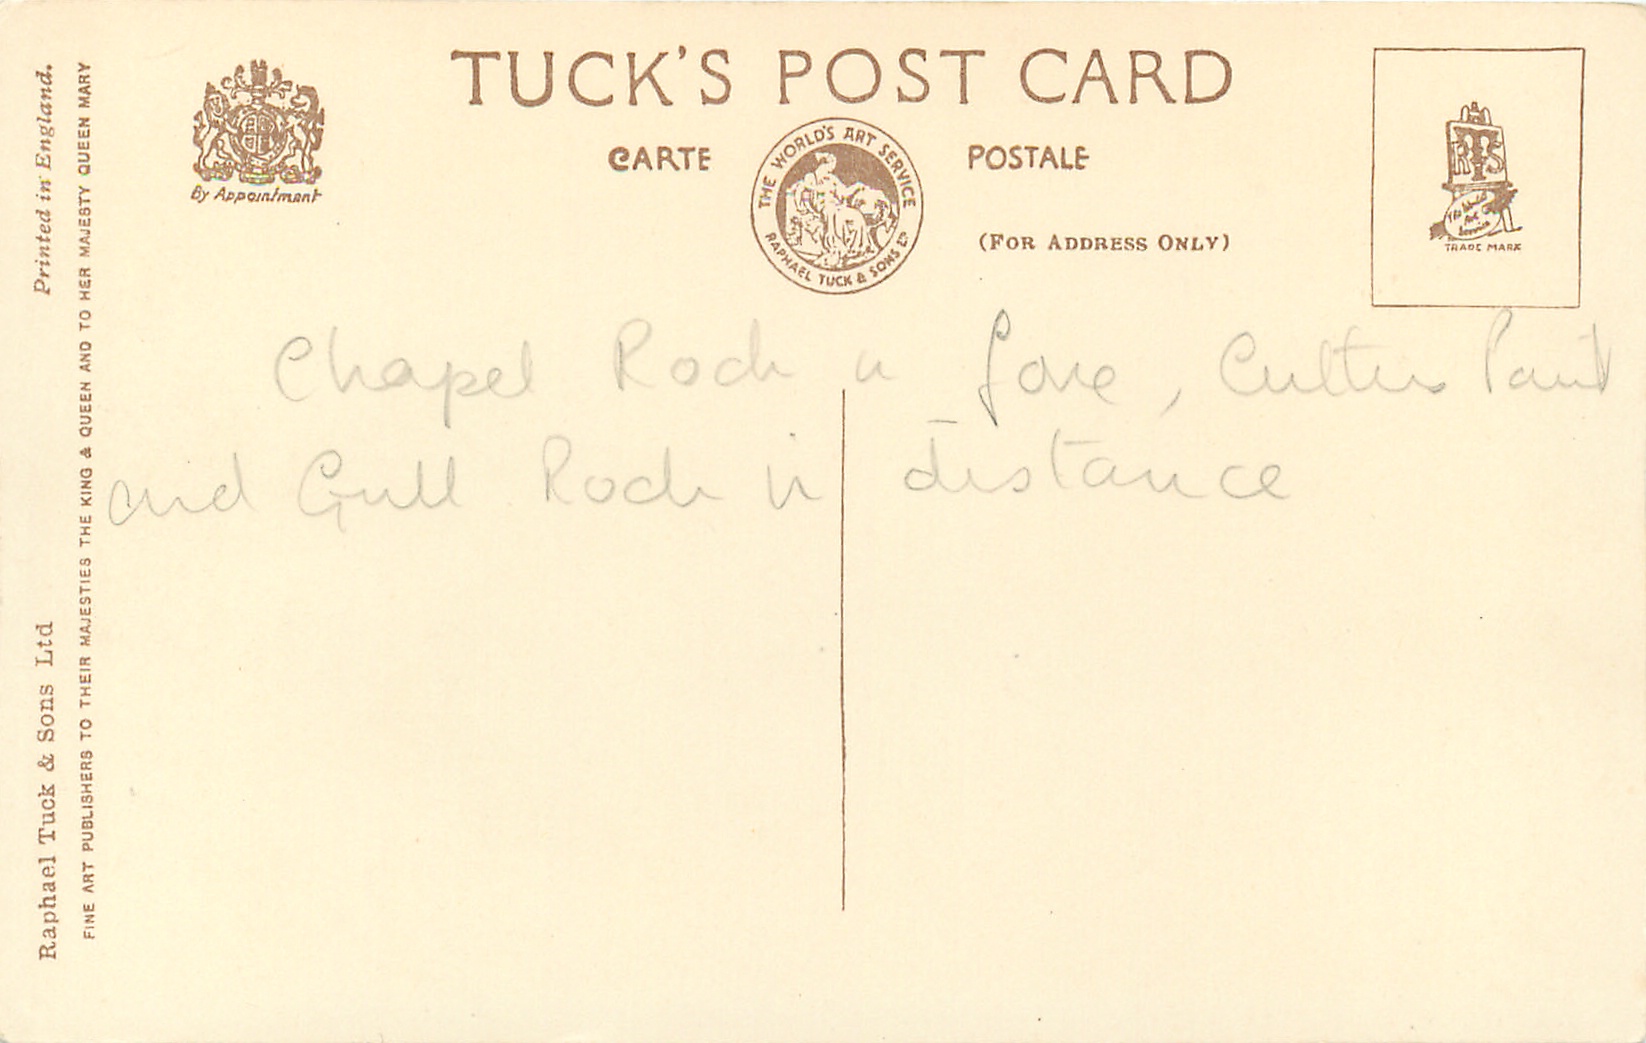 TUCK'S POST CARD
CARTE POSTALE
(FOR ADDRESS ONLY)
By Appointment
THE WORLD'S ART SERVICE
RAPHAEL TUCK & SONS LTD
RTS
The World's Art Service
TRADE MARK
Chapel Rock in fore, Culter Point
and Gull Rock in distance
Printed in England.
Raphael Tuck & Sons Ltd
FINE ART PUBLISHERS TO THEIR MAJESTIES THE KING & QUEEN AND TO HER MAJESTY QUEEN MARY